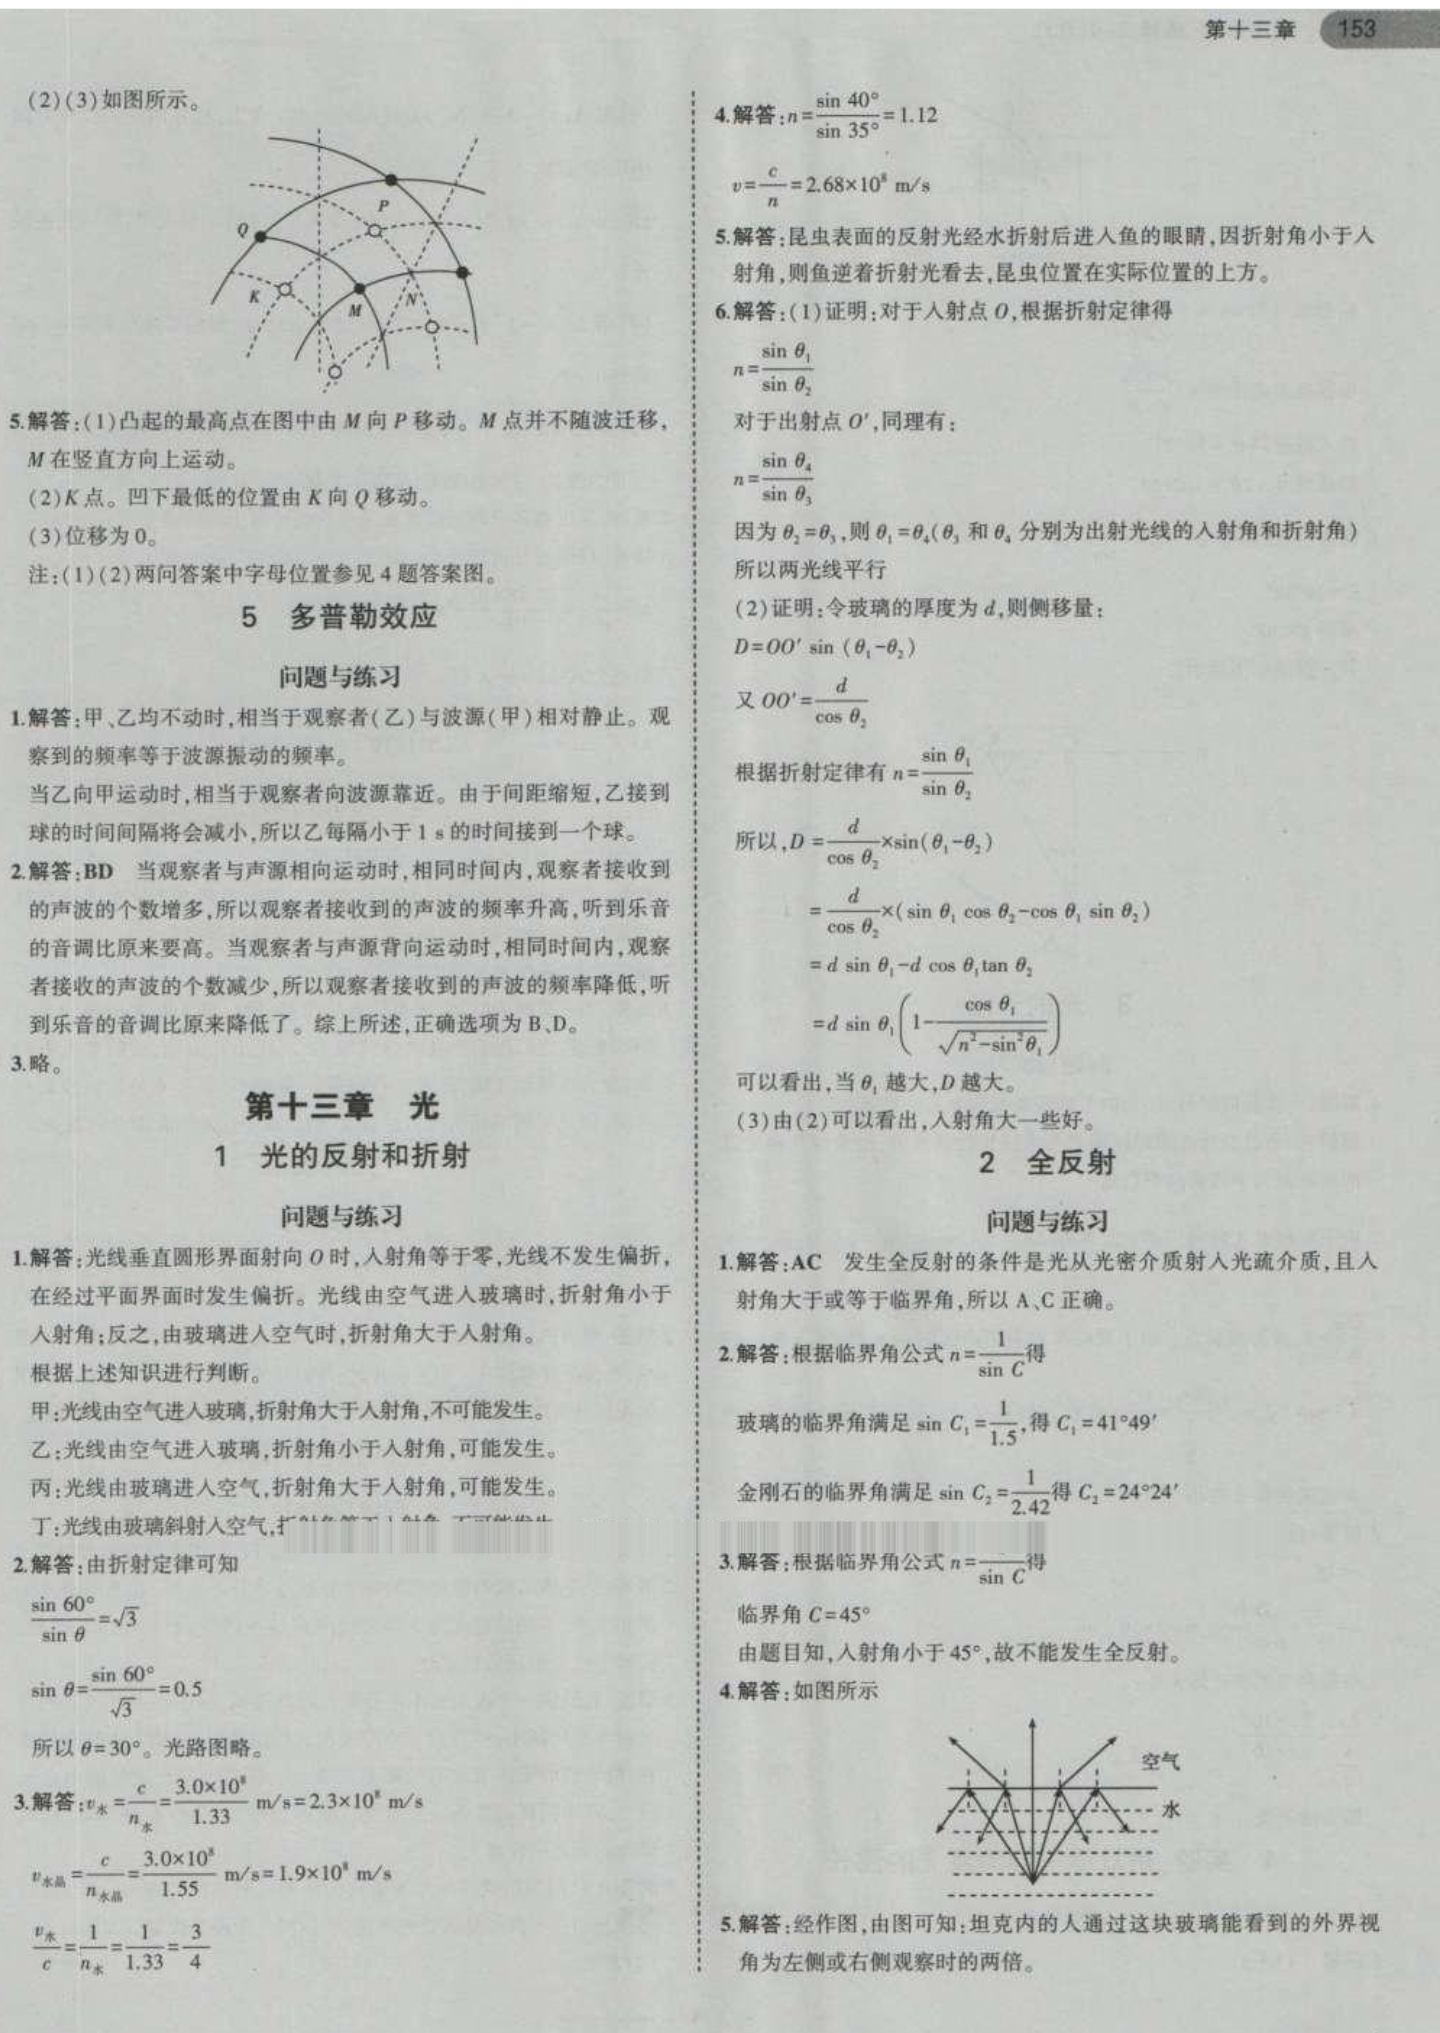 第十三章 153
(2)(3)如图所示。
Q
P
K
M
N
5.解答:(1)凸起的最高点在图中由 M 向 P 移动。M 点并不随波迁移,
M 在竖直方向上运动。
(2)K 点。凹下最低的位置由 K 向 Q 移动。
(3)位移为 0。
注:(1)(2)两问答案中字母位置参见 4 题答案图。
5 多普勒效应
问题与练习
1.解答:甲、乙均不动时,相当于观察者(乙)与波源(甲)相对静止。观
察到的频率等于波源振动的频率。
当乙向甲运动时,相当于观察者向波源靠近。由于间距缩短,乙接到
球的时间间隔将会减小,所以乙每隔小于 1 s 的时间接到一个球。
2.解答:BD 当观察者与声源相向运动时,相同时间内,观察者接收到
的声波的个数增多,所以观察者接收到的声波的频率升高,听到乐音
的音调比原来要高。当观察者与声源背向运动时,相同时间内,观察
者接收的声波的个数减少,所以观察者接收到的声波的频率降低,听
到乐音的音调比原来降低了。综上所述,正确选项为 B、D。
3.略。
第十三章 光
1 光的反射和折射
问题与练习
1.解答:光线垂直圆形界面射向 O 时,入射角等于零,光线不发生偏折,
在经过平面界面时发生偏折。光线由空气进入玻璃时,折射角小于
入射角;反之,由玻璃进入空气时,折射角大于入射角。
根据上述知识进行判断。
甲:光线由空气进入玻璃,折射角大于入射角,不可能发生。
乙:光线由空气进入玻璃,折射角小于入射角,可能发生。
丙:光线由玻璃进入空气,折射角大于入射角,可能发生。
丁:光线由玻璃斜射入空气,
2.解答:由折射定律可知
sin 60°/sin θ=√3
sin θ=sin 60°/√3=0.5
所以 θ=30°。光路图略。
3.解答:v水=c/n水=3.0×10⁸/1.33 m/s=2.3×10⁸ m/s
v水晶=c/n水晶=3.0×10⁸/1.55 m/s=1.9×10⁸ m/s
v水/c=1/n水=1/1.33=3/4
4.解答:n=sin 40°/sin 35°=1.12
v=c/n=2.68×10⁸ m/s
5.解答:昆虫表面的反射光经水折射后进入鱼的眼睛,因折射角小于入
射角,则鱼逆着折射光看去,昆虫位置在实际位置的上方。
6.解答:(1)证明:对于入射点 O,根据折射定律得
n=sin θ₁/sin θ₂
对于出射点 O′,同理有:
n=sin θ₄/sin θ₃
因为 θ₂=θ₃,则 θ₁=θ₄(θ₃ 和 θ₄ 分别为出射光线的入射角和折射角)
所以两光线平行
(2)证明:令玻璃的厚度为 d,则侧移量:
D=OO′ sin (θ₁-θ₂)
又 OO′=d/cos θ₂
根据折射定律有 n=sin θ₁/sin θ₂
所以,D=d/cos θ₂×sin(θ₁-θ₂)
=d/cos θ₂×(sin θ₁ cos θ₂-cos θ₁ sin θ₂)
=d sin θ₁-d cos θ₁tan θ₂
=d sin θ₁(1-cos θ₁/√(n²-sin²θ₁))
可以看出,当 θ₁ 越大,D 越大。
(3)由(2)可以看出,入射角大一些好。
2 全反射
问题与练习
1.解答:AC 发生全反射的条件是光从光密介质射入光疏介质,且入
射角大于或等于临界角,所以 A、C 正确。
2.解答:根据临界角公式 n=1/sin C得
玻璃的临界角满足 sin C₁=1/1.5,得 C₁=41°49′
金刚石的临界角满足 sin C₂=1/2.42得 C₂=24°24′
3.解答:根据临界角公式 n= /sin C得
临界角 C=45°
由题目知,入射角小于 45°,故不能发生全反射。
4.解答:如图所示
空气
水
5.解答:经作图,由图可知:坦克内的人通过这块玻璃能看到的外界视
角为左侧或右侧观察时的两倍。